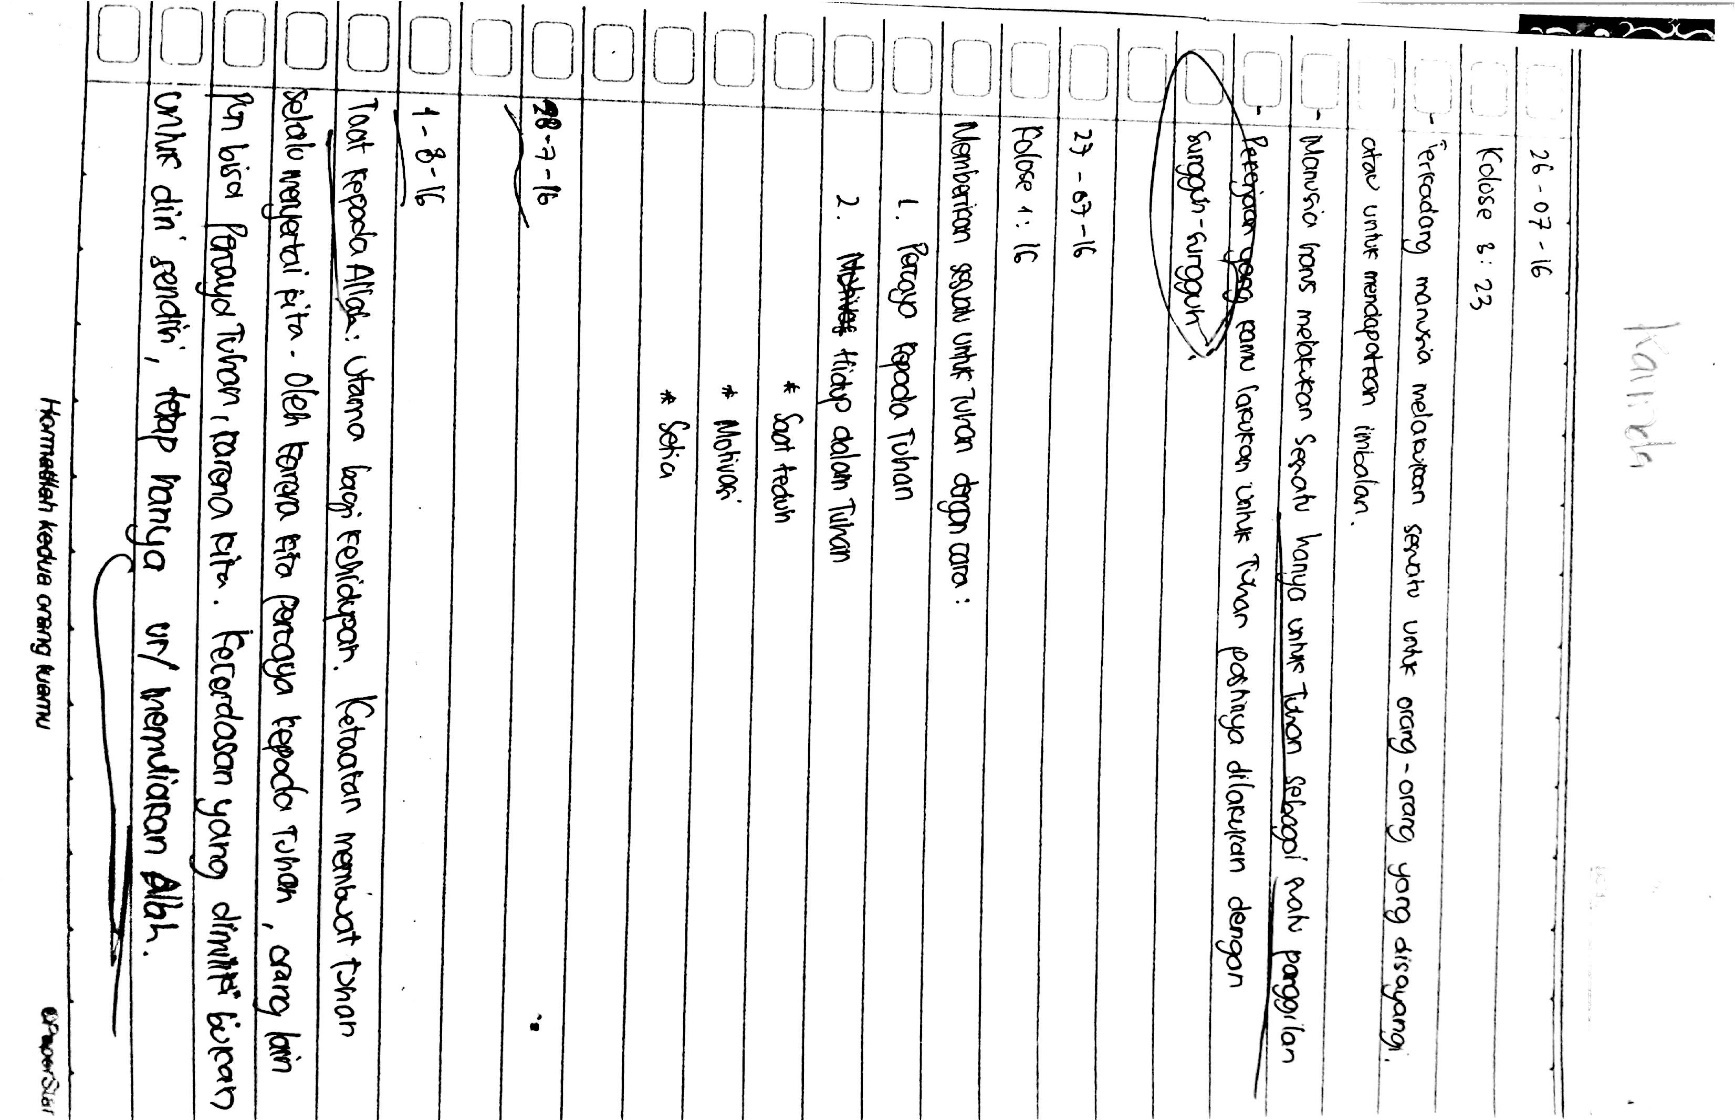 Kainda
26-07-16
Kolose 3:23
- Terkadang manusia melakukan sesuatu untuk orang-orang yang disayangi.
atau untuk mendapatkan imbalan.
- Manusia harus melakukan sesuatu hanya untuk Tuhan sebagai suatu panggilan
- Pekerjaan yang kamu lakukan untuk Tuhan pastinya dilakukan dengan
sungguh-sungguh.
27-07-16
Kolose 1:16
Memberikan sesuatu untuk Tuhan dengan cara:
1. Percaya kepada Tuhan
2. Hidup dalam Tuhan
* Saat teduh
* Motivasi
* Setia
28-7-16
1-8-16
Taat kepada Allah: Utama bagi kehidupan. Ketaatan membuat Tuhan
selalu menyertai kita. Oleh karena kita percaya kepada Tuhan, orang lain
pun bisa percaya Tuhan, karena kita. Kecerdasan yang dimiliki bukan
untuk diri sendiri, tetap hanya un/ memuliakan Allah.
Hormatilah kedua orang tuamu
PaperStar